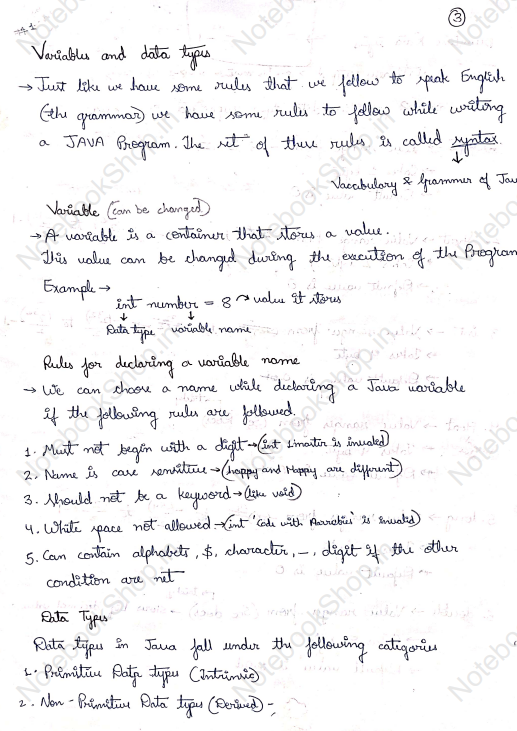 3
Variables and data types
→ Just like we have some rules that we follow to speak English
(the grammar) we have some rules to follow while writing
a JAVA Program. The set of these rules is called syntax.
↓
Vocabulary & Grammer of Jav
Variable (can be changed)
→ A variable is a container that stores a value.
This value can be changed during the execution of the Program
Example →
int number = 8 → value it stores
↓ ↓
Data type variable name
Rules for declaring a variable name
→ We can choose a name while declaring a Java variable
if the following rules are followed.
1. Must not begin with a digit → (int 1maiter is invalid)
2. Name is case sensitive → (happy and Happy are different)
3. Should not be a keyword → (like void)
4. White space not allowed → (int 'Code with is invalid)
5. Can contain alphabets, $, character, _, digit if the other
condition are met
Data Types
Data types in Java fall under the following categories
1. Primitive Data types (Intrinsic)
2. Non-Primitive Data types (Derived) -
NotebookShop.in